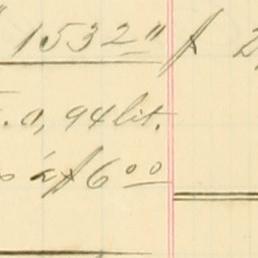 1532 f
0,94 lit.
à f 6 00